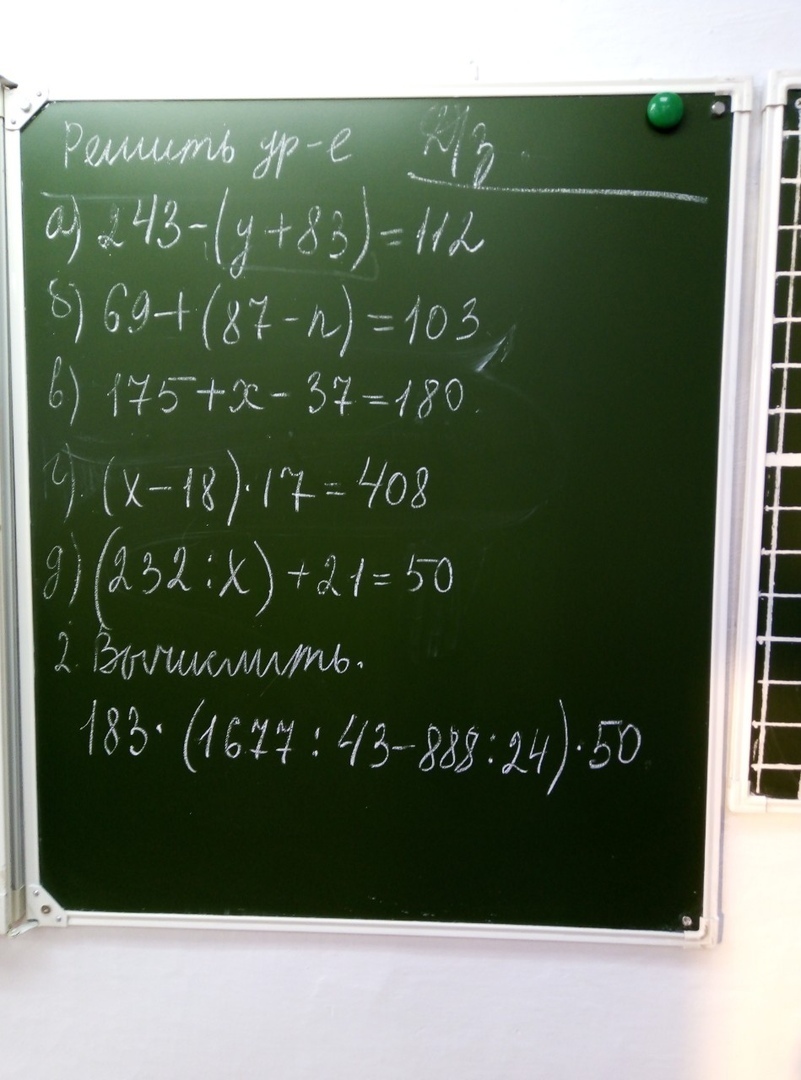 Решить ур-е Д/з.
а) 243-(y+83)=112
б) 69+(87-n)=103
в) 175+x-37=180.
г). (x-18)·17=408
д) (232:x)+21=50
2. Вычислить.
183·(1677:43-888:24)·50